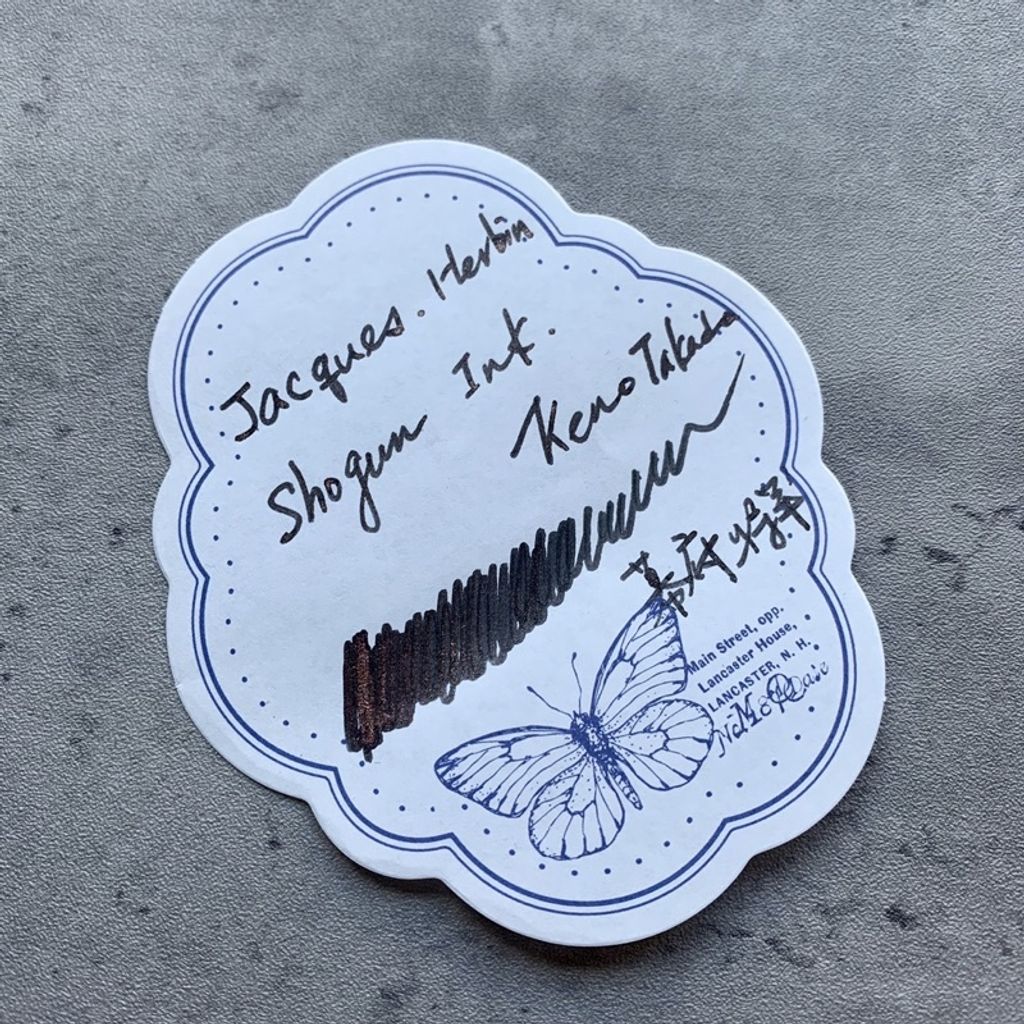 Jacques. Herbin
Shogun Ink.
Keno Takada
幕府将
Main Street, opp.
Lancaster House,
LANCASTER, N. H.